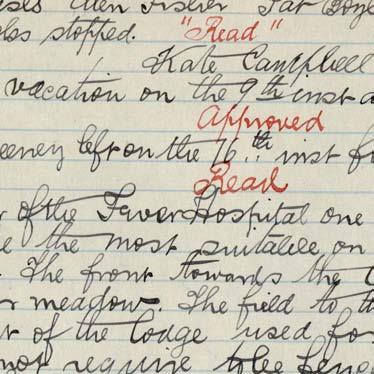 Allen Fisher Pat Boyle
stopped. "Read"
Kate Campbell
vacation on the 9th inst a
Approved
eeney left on the 16th inst f
Read
of the Fever Hospital one
e the most suitable on
. The front towards the
r meadow. The field to th
t of the lodge used fo
not require to be fence